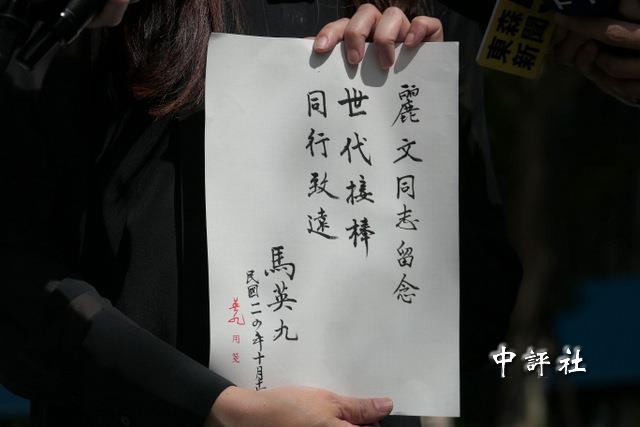 麗文同志留念
世代接棒
同行致遠
馬英九
民國一一四年十月
英九用箋
東森
新
中評社